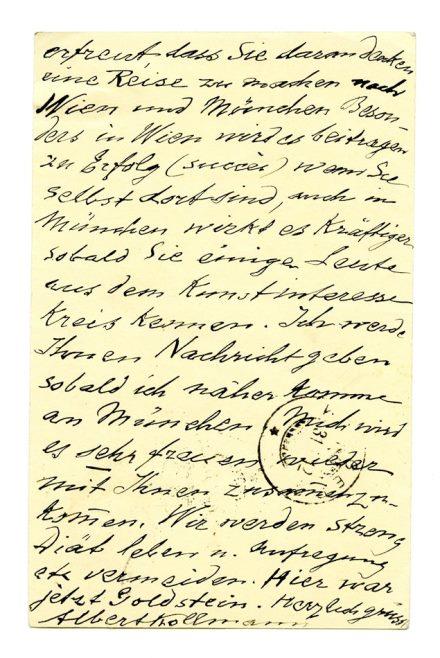 erfreut dass Sie daran denken
eine Reise zu machen nach
Wien und München Beson-
ders in Wien wird es beitragen
zu Erfolg (succès) wenn Sie
selbst dort sind, auch in
München wirkt es Kräftiger
sobald Sie einige Leute
aus dem Kunstinteresse
Kreis kennen. Ich werde
Ihnen Nachricht geben
sobald ich näher komme
an München Mich wird
es sehr freuen wieder
mit Ihnen zusammenzu-
kom̄en. Wir werden streng
Diät leben u. Aufregung
etc vermeiden. Hier war
jetzt Goldstein. Herzlich grüsst
Albert Kollmann